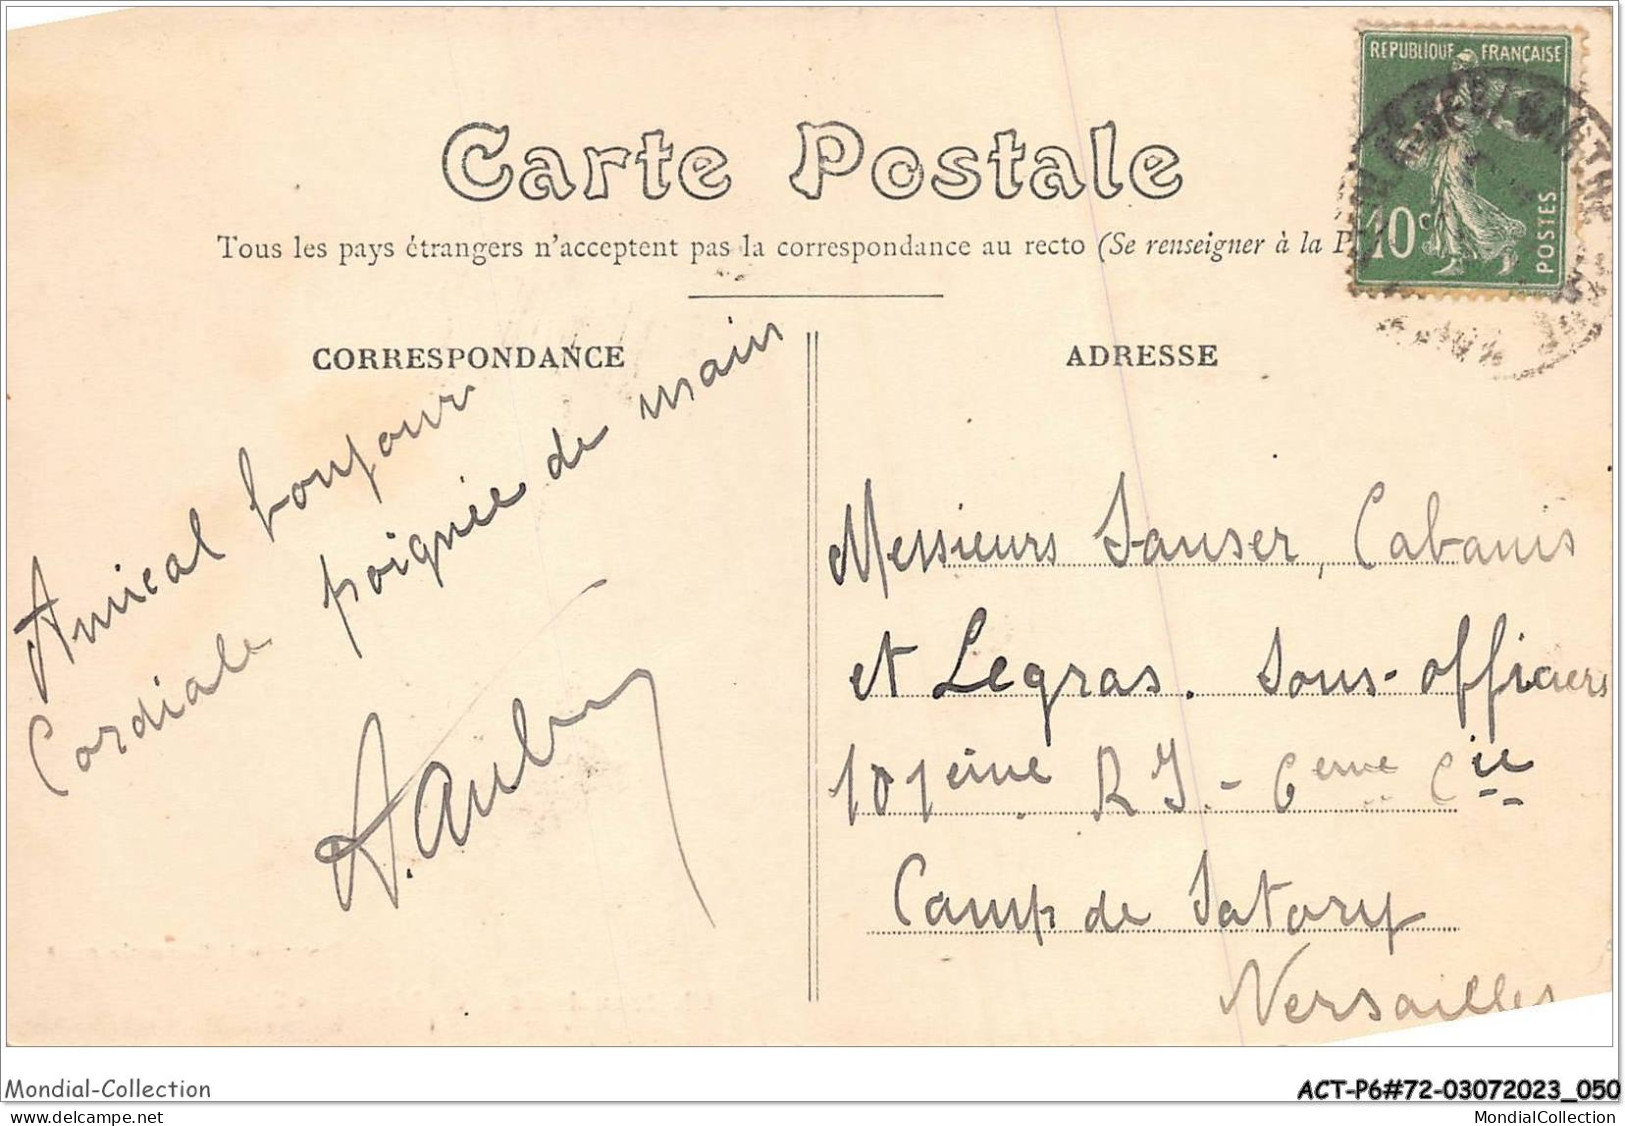 REPUBLIQUE FRANÇAISE
10c
POSTES
Carte Postale
Tous les pays étrangers n'acceptent pas la correspondance au recto (Se renseigner à la P
CORRESPONDANCE
Amical bonjour
Cordiale poignée de main
A. Aubry
ADRESSE
Messieurs Sauser, Cabanis
et Legras. Sous-officiers
101eme R I. - 6eme Cie
Camp de Satory
Versailles
Mondial-Collection
ACT-P6#72-03072023_050
www.delcampe.net
MondialCollection